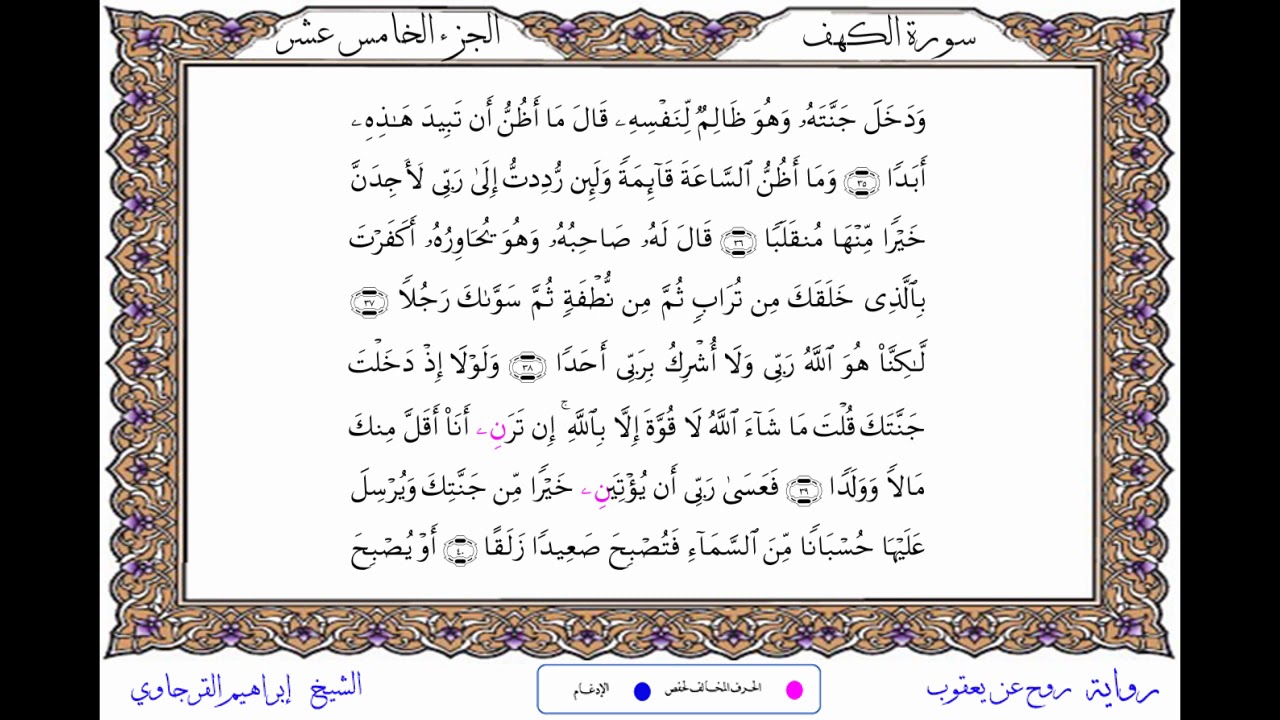 سورة الكهف
الجزء الخامس عشر
وَدَخَلَ جَنَّتَهُۥ وَهُوَ ظَالِمٌ لِّنَفْسِهِۦ قَالَ مَا أَظُنُّ أَن تَبِيدَ هَٰذِهِۦ
أَبَدًا ٣٥ وَمَا أَظُنُّ ٱلسَّاعَةَ قَآئِمَةً وَلَئِن رُّدِدتُّ إِلَىٰ رَبِّى لَأَجِدَنَّ
خَيْرًا مِّنْهَا مُنقَلَبًا ٣٦ قَالَ لَهُۥ صَاحِبُهُۥ وَهُوَ يُحَاوِرُهُۥ أَكَفَرْتَ
بِٱلَّذِى خَلَقَكَ مِن تُرَابٍ ثُمَّ مِن نُّطْفَةٍ ثُمَّ سَوَّىٰكَ رَجُلًا ٣٧
لَّٰكِنَّا۠ هُوَ ٱللَّهُ رَبِّى وَلَا أُشْرِكُ بِرَبِّى أَحَدًا ٣٨ وَلَوْلَا إِذْ دَخَلْتَ
جَنَّتَكَ قُلْتَ مَا شَآءَ ٱللَّهُ لَا قُوَّةَ إِلَّا بِٱللَّهِ ۚ إِن تَرَنِۦ أَنَا۠ أَقَلَّ مِنكَ
مَالًا وَوَلَدًا ٣٩ فَعَسَىٰ رَبِّى أَن يُؤْتِيَنِۦ خَيْرًا مِّن جَنَّتِكَ وَيُرْسِلَ
عَلَيْهَا حُسْبَانًا مِّنَ ٱلسَّمَآءِ فَتُصْبِحَ صَعِيدًا زَلَقًا ٤٠ أَوْ يُصْبِحَ
رواية روح عن يعقوب
الحرف المخالف لحفص
الإدغام
الشيخ إبراهيم القرجاوي